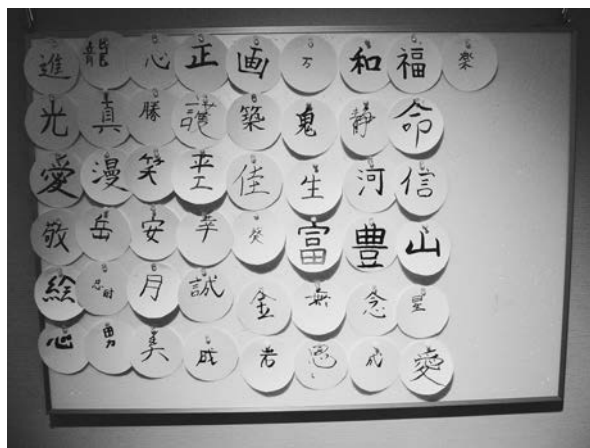 進 龍 心 正 画 万 和 福 楽
光 真 勝 護 築 鬼 静 命
愛 漫 笑 平 佳 生 河 信
敬 岳 安 幸 癸 富 豊 山
絵 忍耐 月 誠 金 無 念 星
心 勇 美 成 君 恩 成 愛